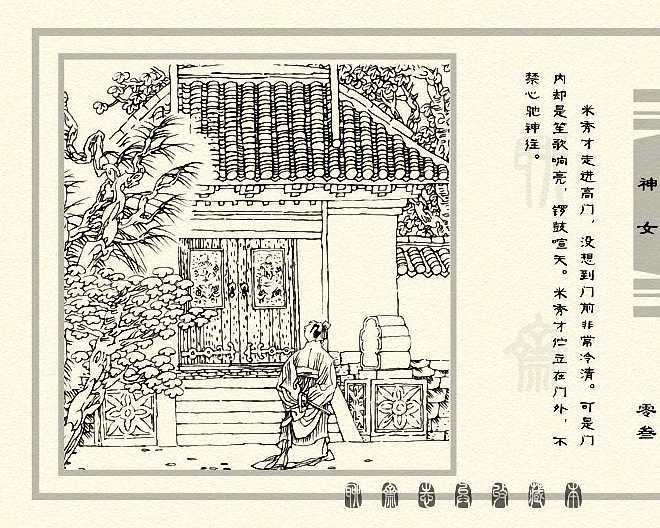 米秀才走进高门，没想到门前非常冷清。可是门
内却是笙歌响亮，锣鼓喧天。米秀才伫立在门外，不
禁心驰神往。
神女
零叁